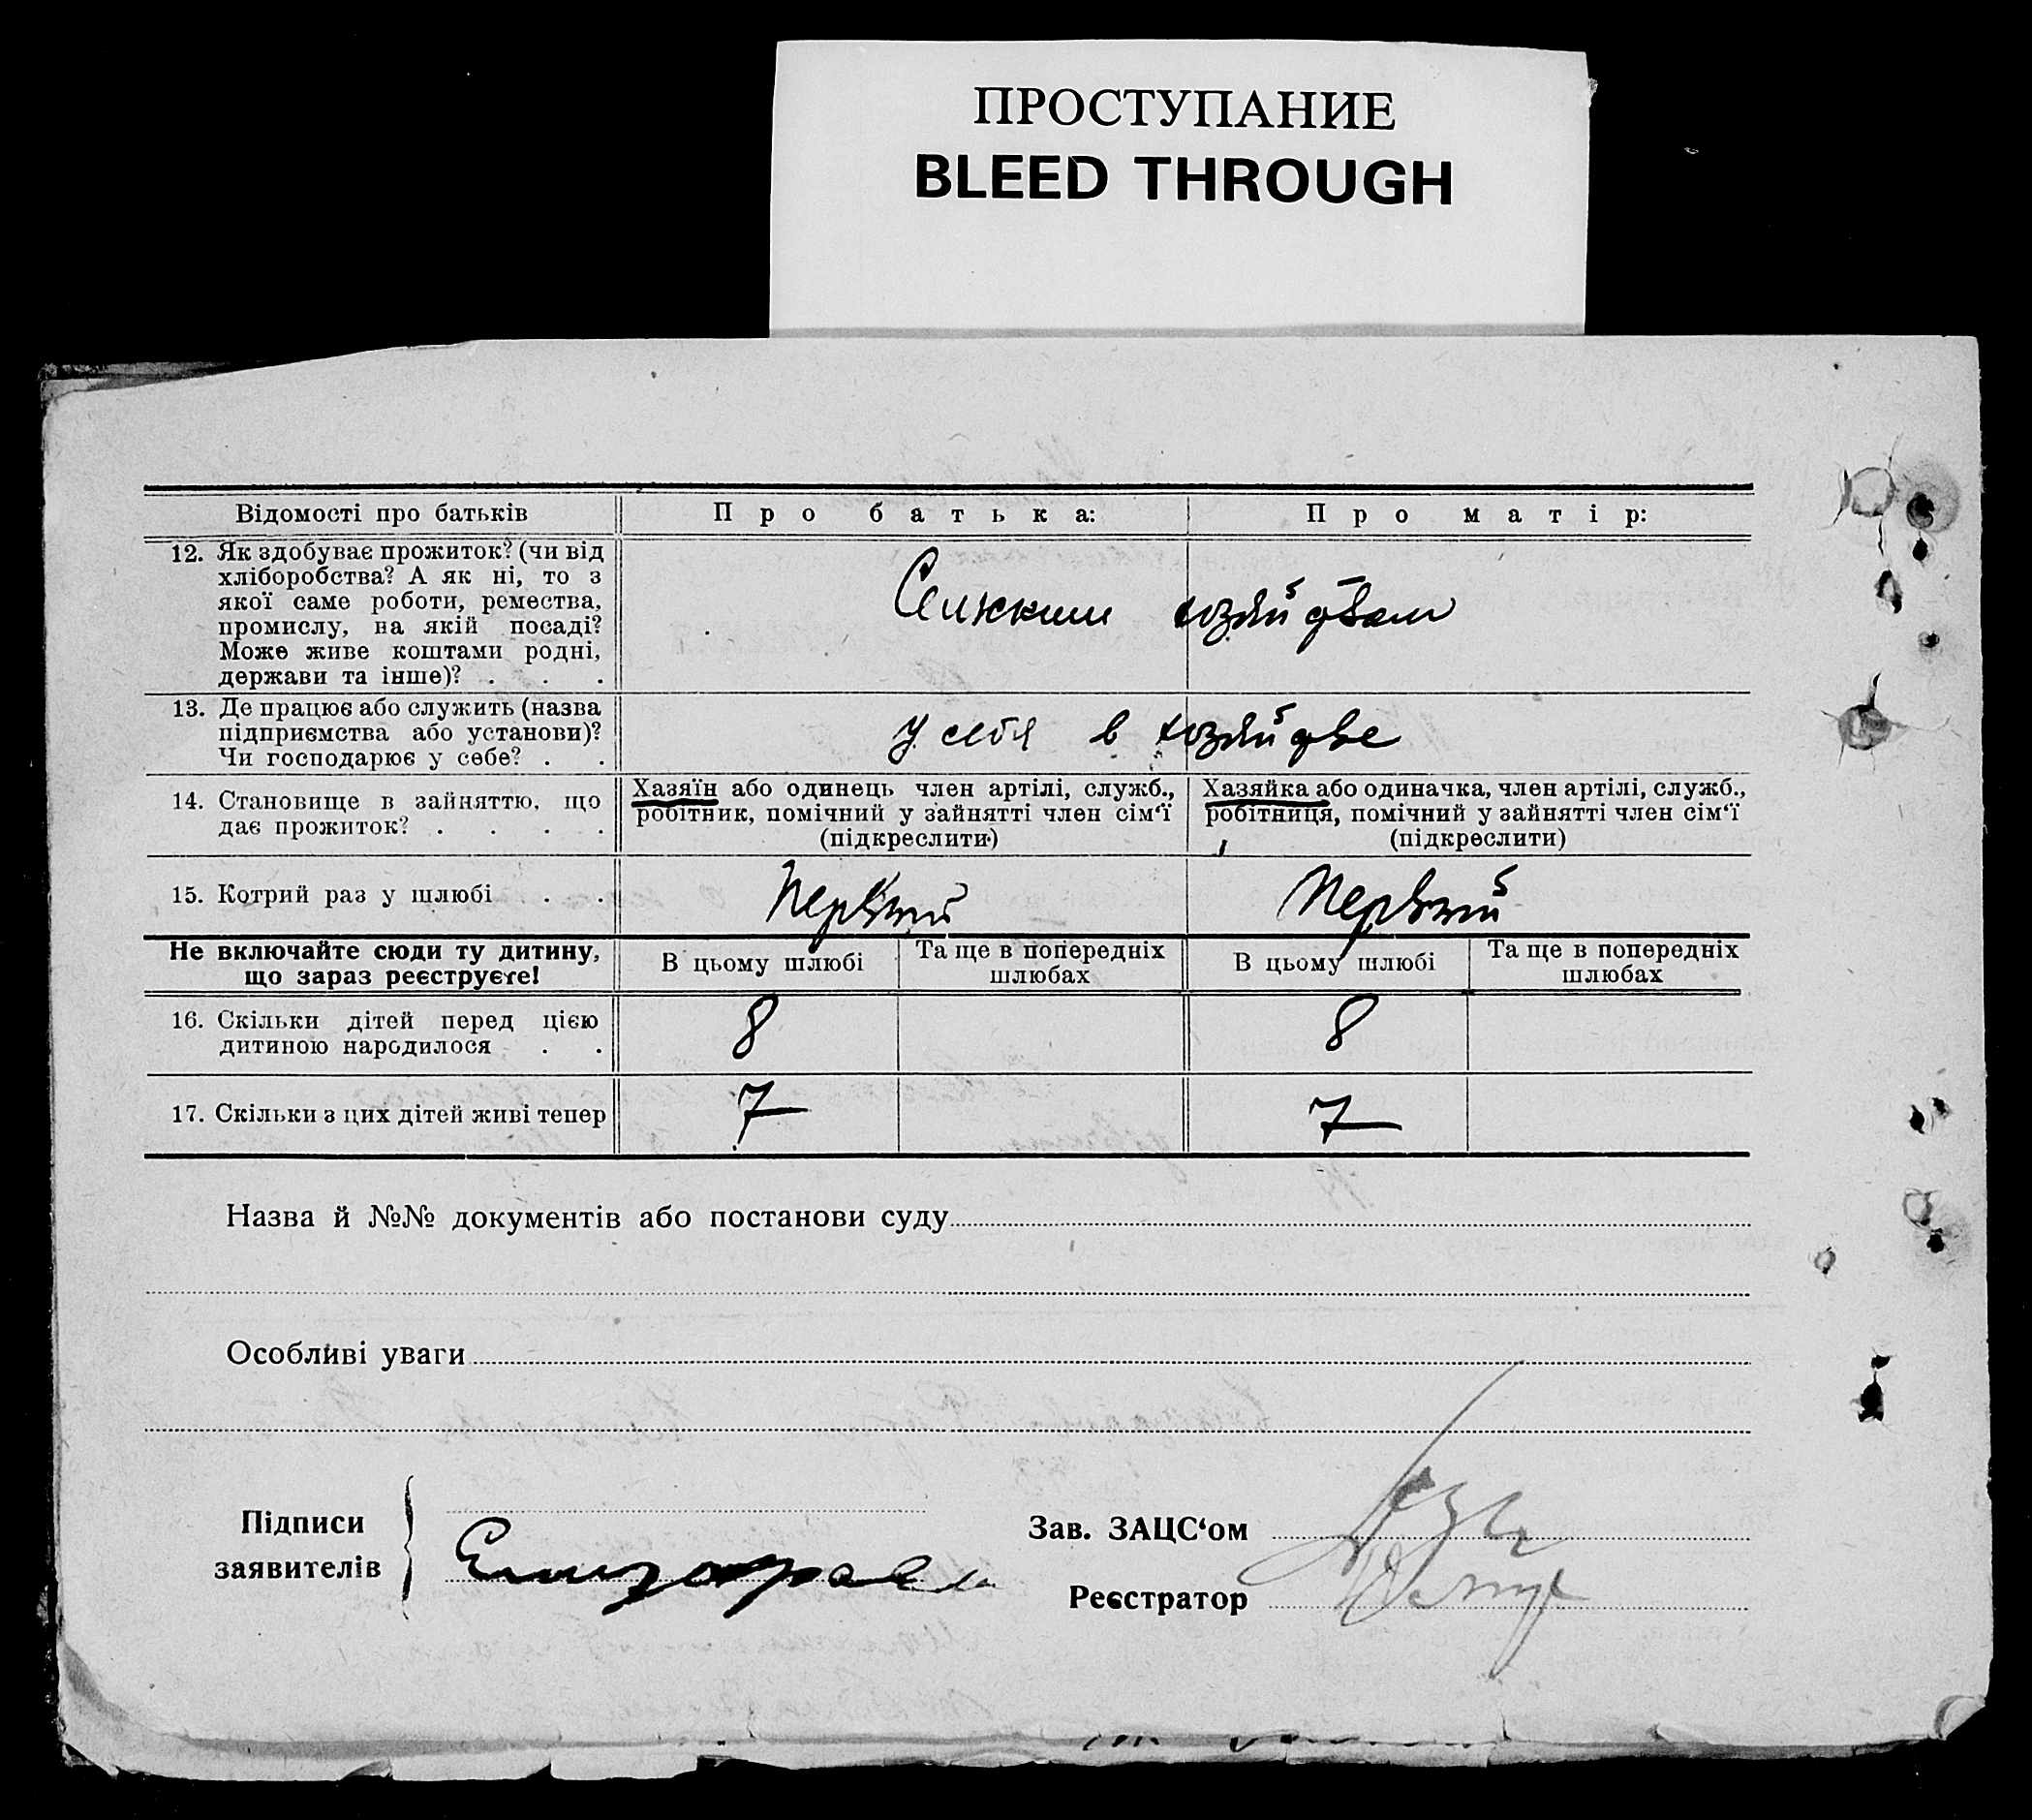 ПРОСТУПАНИЕ
BLEED THROUGH
Відомості про батьків
Про батька:
Про матір:
12. Як здобуває прожиток? (чи від
хліборобства? А як ні, то з
якої саме роботи, ремества,
промислу, на якій посаді?
Може живе коштами родні,
держави та інше)? . . .
хозяйством
13. Де працює або служить (назва
підприємства або установи)?
Чи господарює у себе? . .
у себя в хозяйстве
14. Становище в зайняттю, що
дає прожиток? . . . .
Хазяїн або одинець член артілі, служб.,
робітник, помічний у зайнятті член сім‘ї
(підкреслити)
Хазяйка або одиначка, член артілі, служб.,
робітниця, помічний у зайнятті член сім‘ї
(підкреслити)
15. Котрий раз у шлюбі . .
Первый
Первый
Не включайте сюди ту дитину,
що зараз реєструєте!
В цьому шлюбі
Та ще в попередніх
шлюбах
В цьому шлюбі
Та ще в попередніх
шлюбах
16. Скільки дітей перед цією
дитиною народилося . .
8
8
17. Скільки з цих дітей живі тепер
7
7
Назва й №№ документів або постанови суду
Особливі уваги
Підписи
заявителів
Зав. ЗАЦС‘ом
Реєстратор